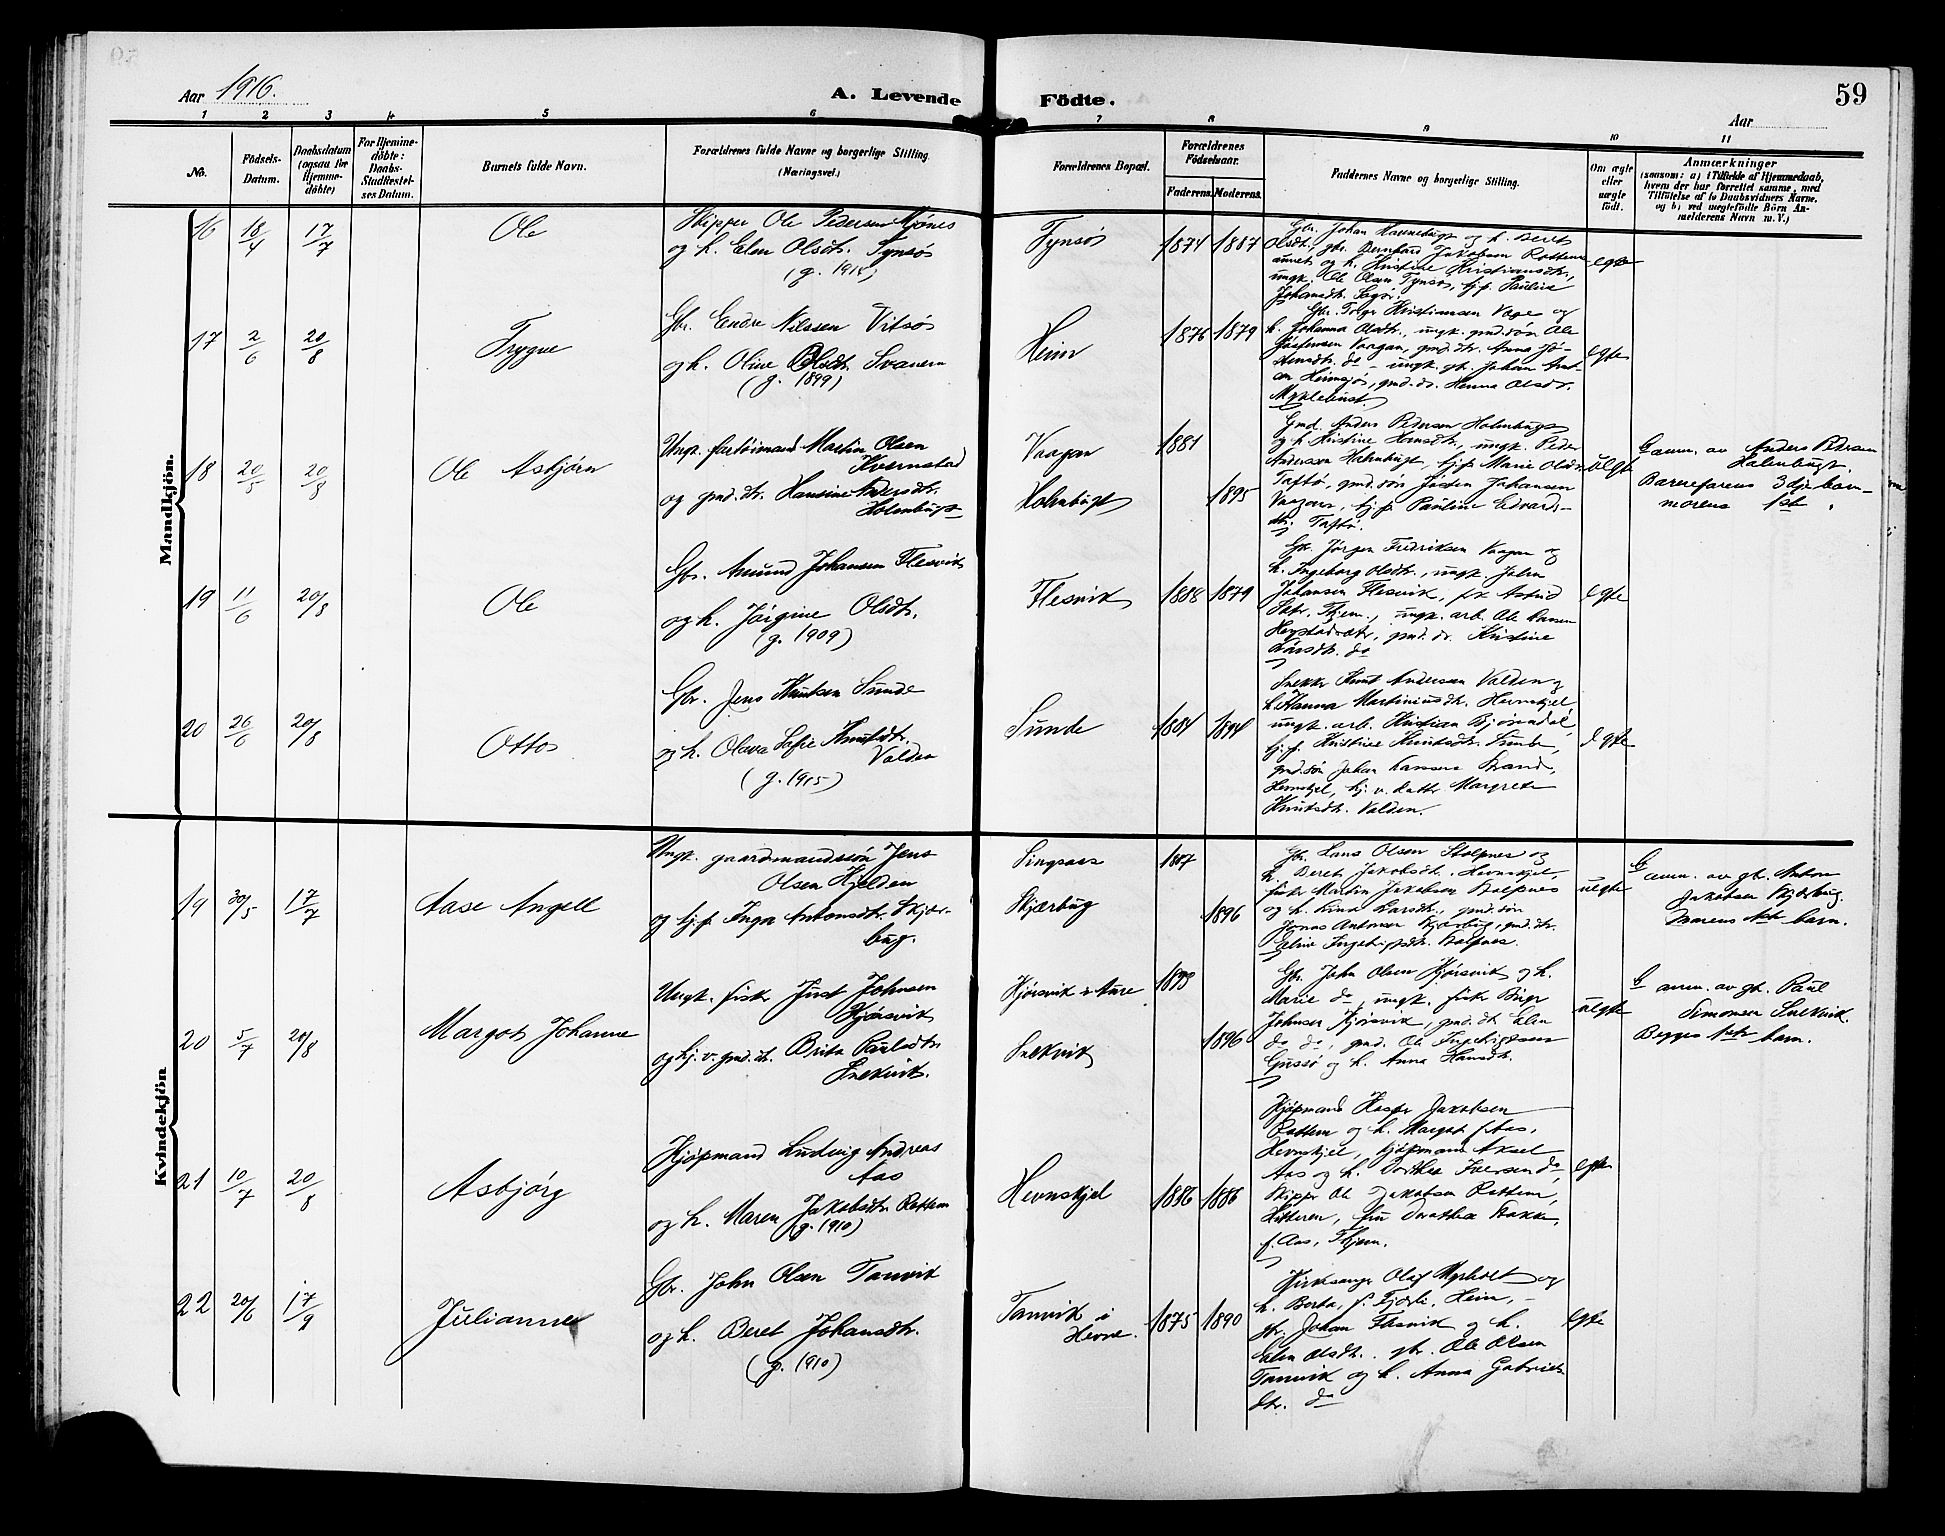 59
Aar 1916.
A. Levende Födte.
Aar
1 2 3 4 5 6 7 8 9 10 11
No.
Födsels-
Datum.
Daabsdatum
(ogsaa for
Hjemme-
döbte)
For Hjemme-
döbte:
Daabs-
Stadfæstel-
ses Datum.
Barnets fulde Navn.
Forældrenes fulde Navne og borgerlige Stilling.
(Næringsvei.)
Forældrenes Bopæl.
Forældrenes
Födselsaar.
Faderens. Moderens.
Faddernes Navne og borgerlige Stilling.
Om ægte
eller
uægte
födt.
Anmærkninger
(saasom: a) i Tilfælde af Hjemmedaab,
hvem der har forrettet samme, med
Tilföielse af to Daabsvidners Navne.
og b) ved uægtefödte Börn An-
melderens Navn m. V.)
Mandkjön.
16 18/4 17/7 Ole
Skipper Ole Pedersen Mjönes
og h. Elen Olsdt. Tynsøs
(g. 1915)
Tynsøs 1874 1887
Gbr. Johan Havnebugt og h. Beret
Olsdt., gbr. Bernhard Jakobsen Rottem
og h. Kristine Kristiansdt.,
ungk. Ole Olsen Tynsøs, tj.p. Pauline
Johansdt.
egte
17 2/6 20/8 Trygve
Gbr. Endre Nilssen Vitsøs
og h. Oline Olsdt. Svanem
(g. 1899)
Heim 1876 1879
Gbr. Kristiansen Vage og
h. Johanna Olsdt., ungk. gmd.søn Ole
Vaagan, gmd.dtr. Anna
do - ungk. Johan
Heimsjøs, gmd.dt. Hanna Olsdt.
Myklebust.
egte
18 20/5 20/8 Ole Asbjørn
Ungk. fartøimand Martin Olsen
Kvernstad
og gmd.dtr. Hansine Andersdt.
Holmbugt
Vaagan 1881
Holmbugt 1895
Gmd. Anders Pedersen Holmbugt
og h. Kristine Hansdt., ungk. Peder
Anderssen Holmbugt, tj.p. Marie Olsdt.
Taftø, gmd.søn Jostein Johansen
Vaagan, tj.p. Pauline Edvards-
dtr. Taftø.
uegte
anm. av Anders Pedersen
Holmbugt.
Barnefarens 3dje barn
morens 1st.
19 11/6 20/8 Ole
Gbr. Amund Johansen Flesvik
og h. Jørgine Olsdt.
(g. 1909)
Flesvik 1888 1879
Gbr. Jørgen Fredriksen Vaagan og
h. Ingeborg Olsdt., ungk. John
Johansen Flesvik, Astrid
ungk. arb. Ole Hansen
gmd.dt. Kristine
Larsdt. do
egte
20 26/6 20/8 Otto
Gbr. Jens Knutsen Sunde
og h. Olava Sofie Knutsdt.
Valden
(g. 1915)
Sunde 1884 1894
Snekker Knut Andersen Valden og
h. Hanna Martiniusdt. Hevnskjel,
ungk. arb. Kristian Bjørndal,
tj.p. Kristine Knutsdt. Sunde,
gmd.søn Johan Hansen Strand,
Hevnskjel, tj. v. datter Margrete
Knutsdt. Valden.
egte
Kvindekjön
19 30/5 17/7 Aase Angell
Ungk. gaardmandssøn Jens
Olsen Kjelden
og tj.p. Inga Antonsdt. Skjær-
bug.
Singsaas 1887
Skjærbug 1896
Gbr. Hans Olsen Stolpnes og
h. Beret Jakobsdt. Hevnskjel,
fisker Martin Jakobsen Stolpnes
og h. Lina Larsdt., gmd.søn
Jonas Antonsen Skjærbug, gmd.dtr.
Eline Ingebrigtsdt. Stolpnes.
uegte
anm. av gbr. Anton
Jakobsen Skjærbug.
Morens 1ste barn.
20 5/7 20/8 Margot Johanne
Ungk. fisker Just Johnsen
Kjørsvik
og tj. v. gmd.dt. Brita Paulsdt.
Snekvik.
Kjørsvik i Aure 1893
Snekvik 1896
Gbr. John Olsen Kjørsvik og h.
Marie do, ungk. fisker Birger
Johnsen Kjørsvik, gmd.dt. Elen
do do, gmd. Ole Ingebrigtsen
og h. Anna Hansdt.
uegte
anm. av gbr. Paul
Simonsen Snekvik.
Begges 1ste barn.
21 10/7 20/8 Asbjørg
Kjøpmand Ludvig Andreas
Aas
og h. Maren Jakobsdt. Rottem
(g. 1910)
Hevnskjel 1886 1886
Kjøpmand Kasper Jakobsen
Rottem og h. Margot f. Aas,
Hevnskjel, kjøpmand Aksel
Aas og h. Dorthea Iversen do,
Skipper Ole Jakobsen Rottem,
Hitteren, fru Dorothea Bakke,
f. Aas,
egte
22 20/6 17/9 Julianne
Gbr. John Olsen Tannvik
og h. Beret Johansdt.
(g. 1910)
Tannvik i
Hevne. 1875 1890
Kirkesanger Olaf Myrholt og
h. Berta, f. Fjærli, Heim, -
gbr. Johan Flesvik og h.
Elen Olsdt. gbr. Ole Olsen
Tannvik og h. Anna Gabriels-
dtr. do
egte